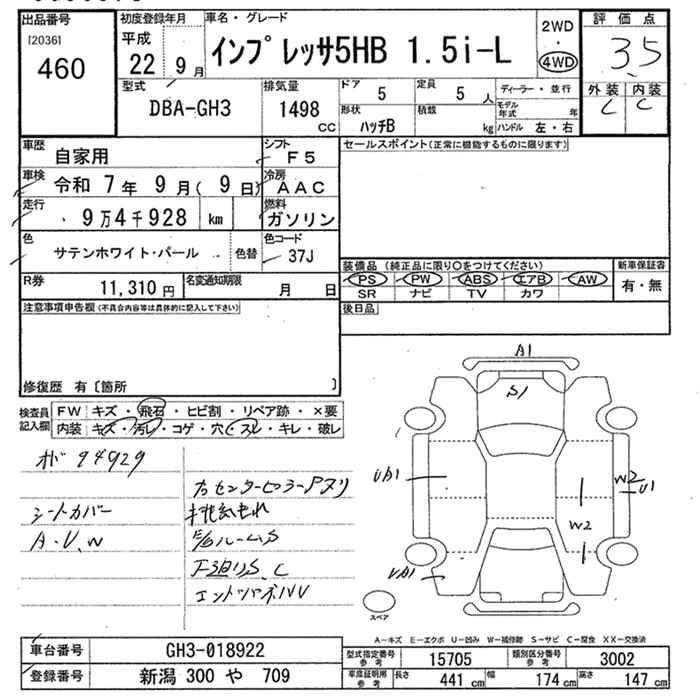 出品番号
[2036]
460
初度登録年月
平成
22年 9月
車名・グレード
インプレッサ5HB 1.5i-L
2WD
4WD
評価点
3.5
外装 内装
C C
型式
DBA-GH3
排気量
1498
CC
ドア
5
定員
5人
形状
ハッチB
積載
kg
ディーラー・並行
モデル年式 年
ハンドル 左・右
車歴
自家用
シフト
F5
車検
令和 7年 9月( 9日)
冷房
AAC
走行
9万4千928 km
燃料
ガソリン
色
サテンホワイト・パール
色替
色コード
37J
R券
11,310円
名変通知期限
月 日
セールスポイント(正常に機能するものに限ります)
装備品(純正品に限り○をつけてください)
PS PW ABS エアB AW
SR ナビ TV カワ
新車保証書
有・無
後日品
注意事項申告欄(不具合内容等は具体的に記入して下さい)
修復歴 有〔箇所 〕
検査員記入欄
FW キズ・飛石・ヒビ割・リペア跡・×要
内装 キズ・汚レ・コゲ・穴・スレ・キレ・破レ
94929
シートカバー
A・U、W
下廻りS、C
A1
S1
UB1
W2
U1
W2
UB1
スペア
A-キズ E-エクボ U-凹み W-補修跡 S-サビ C-腐食 XX-交換済
車台番号
GH3-018922
登録番号
新潟 300 や 709
型式指定番号
参考
15705
類別区分番号
参考
3002
車庫証明用
参考
長さ 441 cm
幅 174 cm
高さ 147 cm